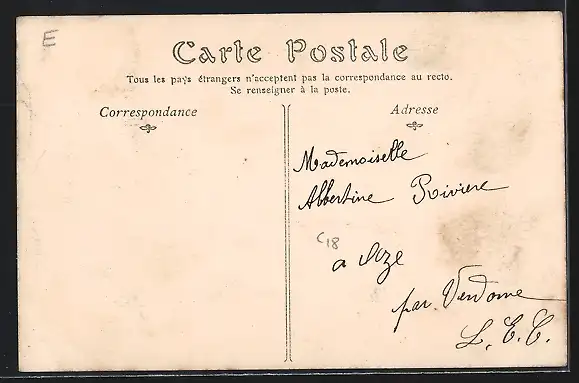 E
Carte Postale
Tous les pays étrangers n'acceptent pas la correspondance au recto.
Se renseigner à la poste.
Correspondance
Adresse
Mademoiselle
Albertine Riviere
C18
a Azé
par Vendome
L. E. C.